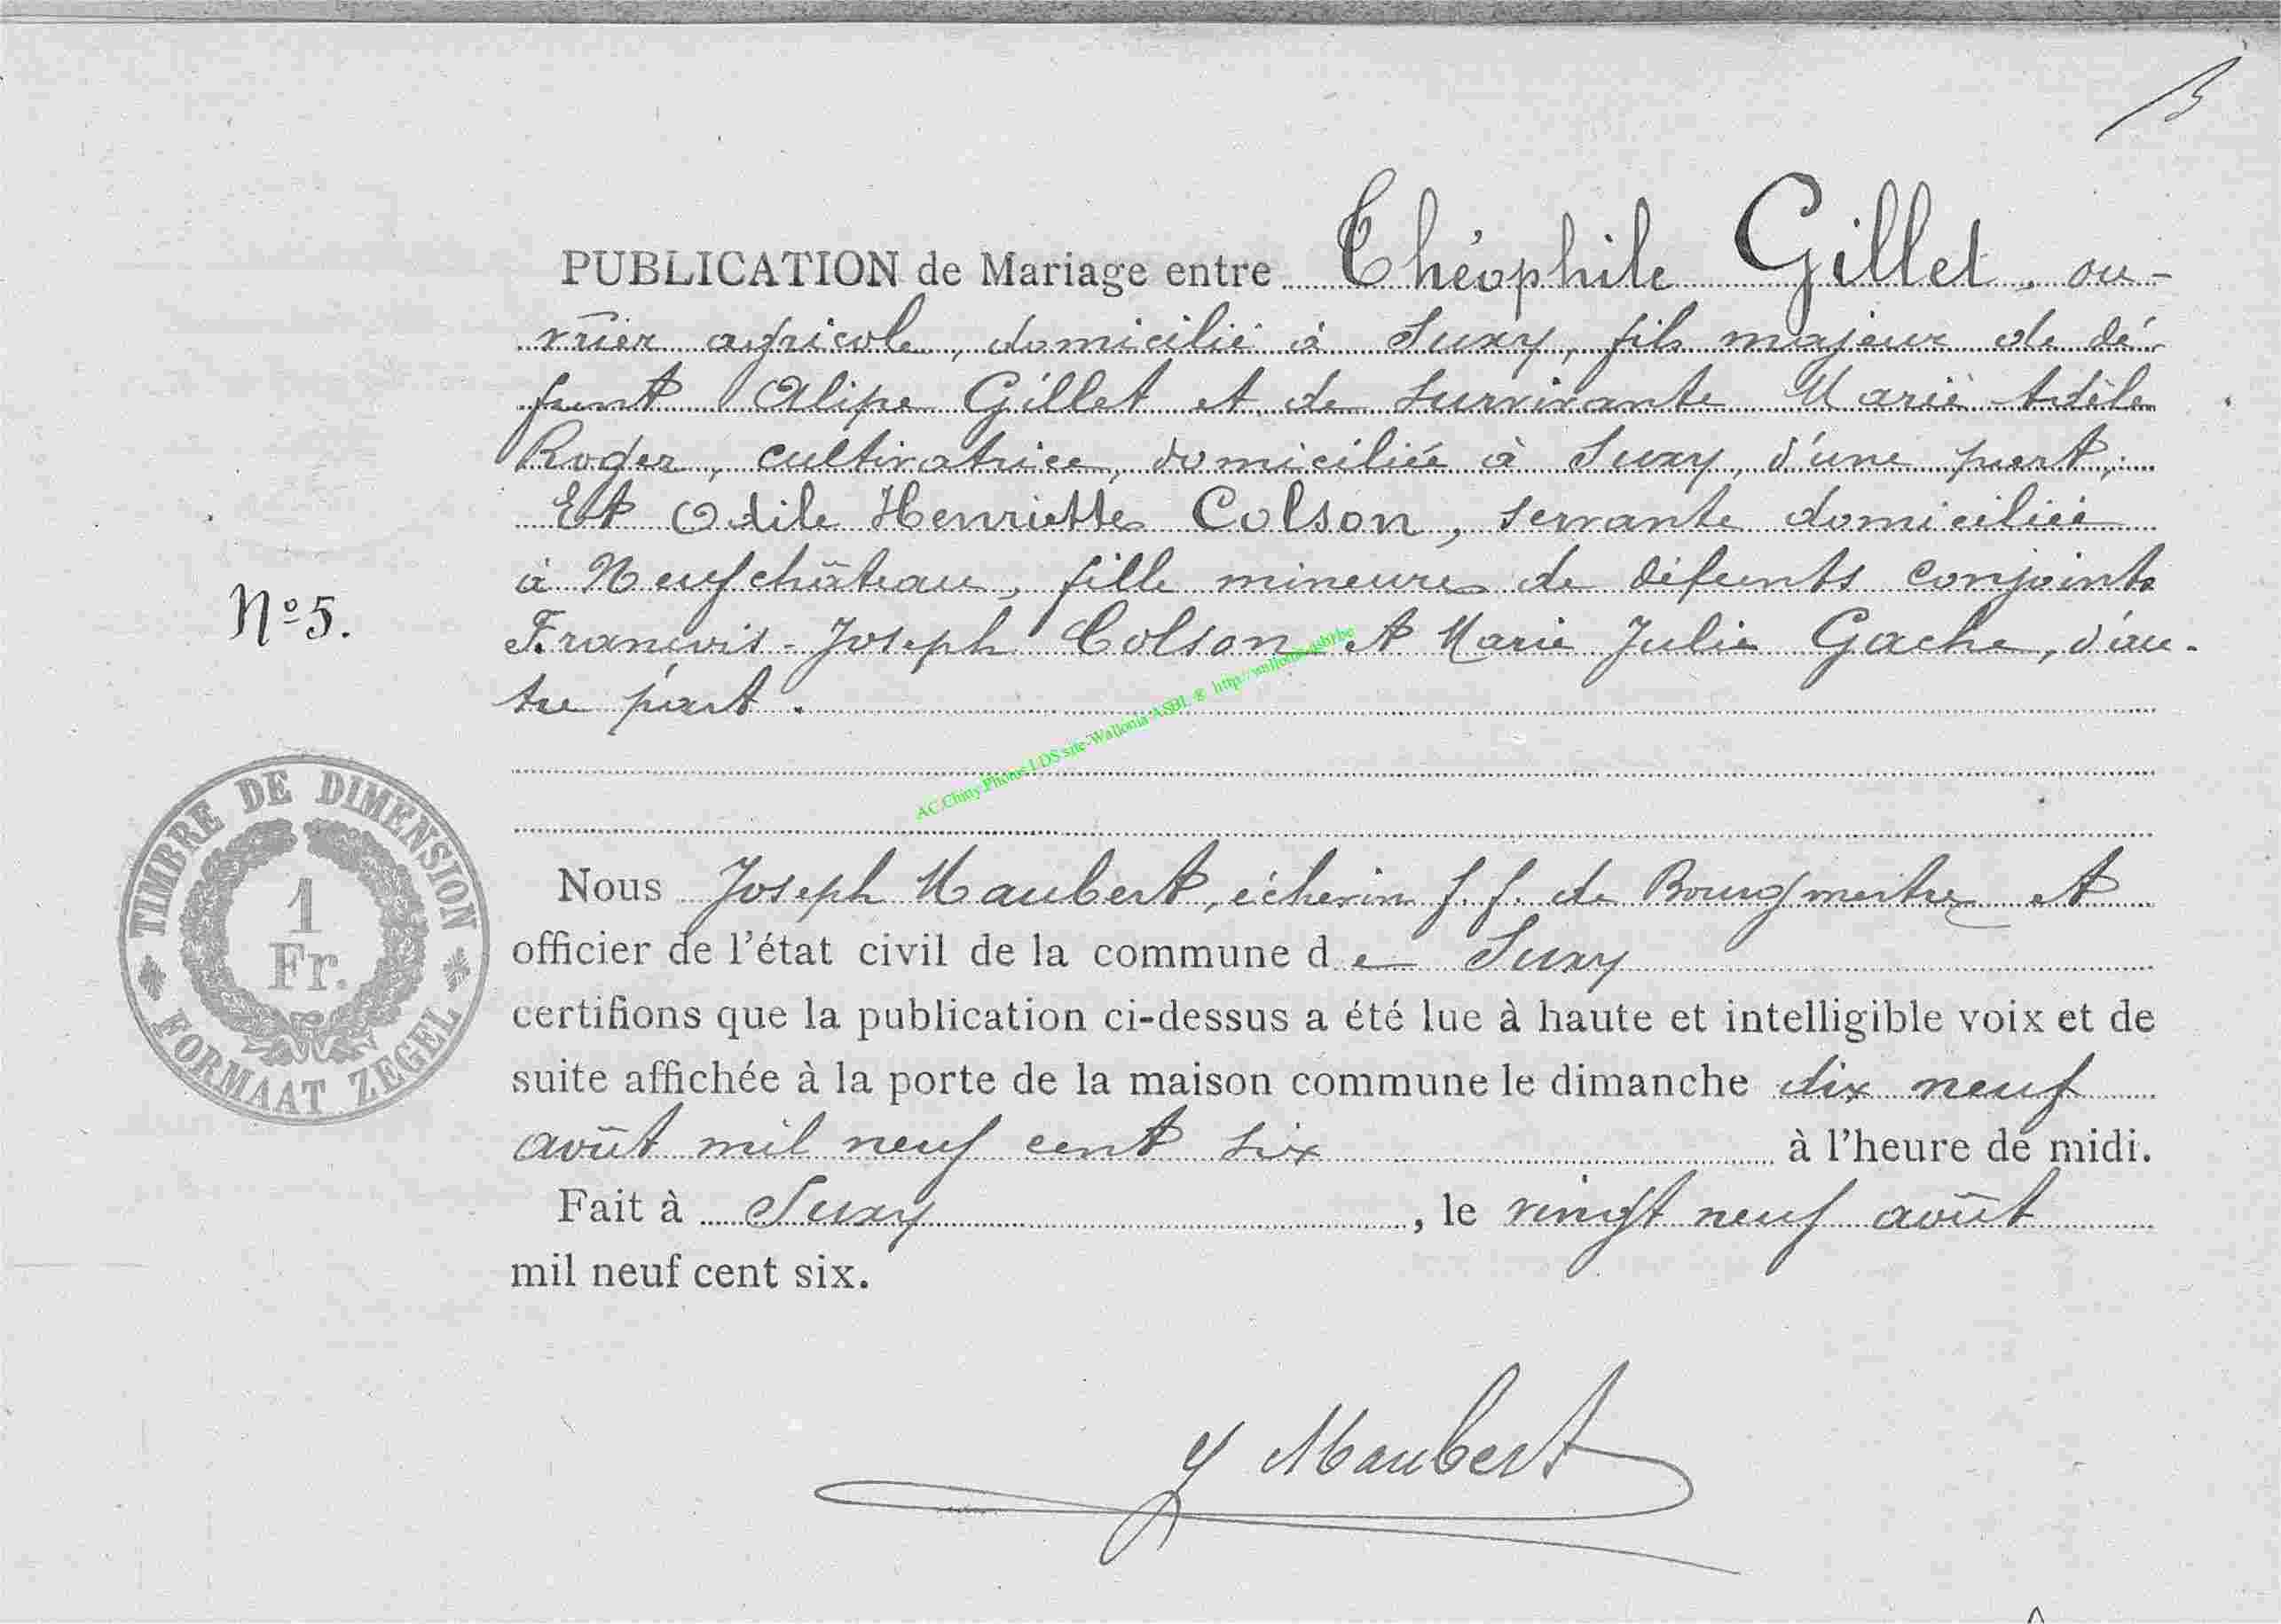 PUBLICATION de Mariage entre Théophile Gillet, ou-
vrier agricole, domicilié à Suxy, fils majeur de dé-
funt Alipe Gillet et de survivante Marie Adèle
Roger, cultivatrice, domiciliée à Suxy, d'une part,
Et Odile Henriette Colson, servante domiciliée
à Neufchâteau, fille mineure de défunts conjoints
N° 5.
François-Joseph Colson et Marie Julie Gache, d'au-
tre part.
AC Chiny Photos LDS site-Wallonia-ASBL ® http://wallonia-asbl.be
TIMBRE DE DIMENSION
1
Fr.
FORMAAT ZEGEL
Nous Joseph Maubert, échevin f.f. de Bourgmestre et
officier de l'état civil de la commune de Suxy
certifions que la publication ci-dessus a été lue à haute et intelligible voix et de
suite affichée à la porte de la maison commune le dimanche dix neuf
août mil neuf cent six à l'heure de midi.
Fait à Suxy, le vingt neuf août
mil neuf cent six.
J Maubert